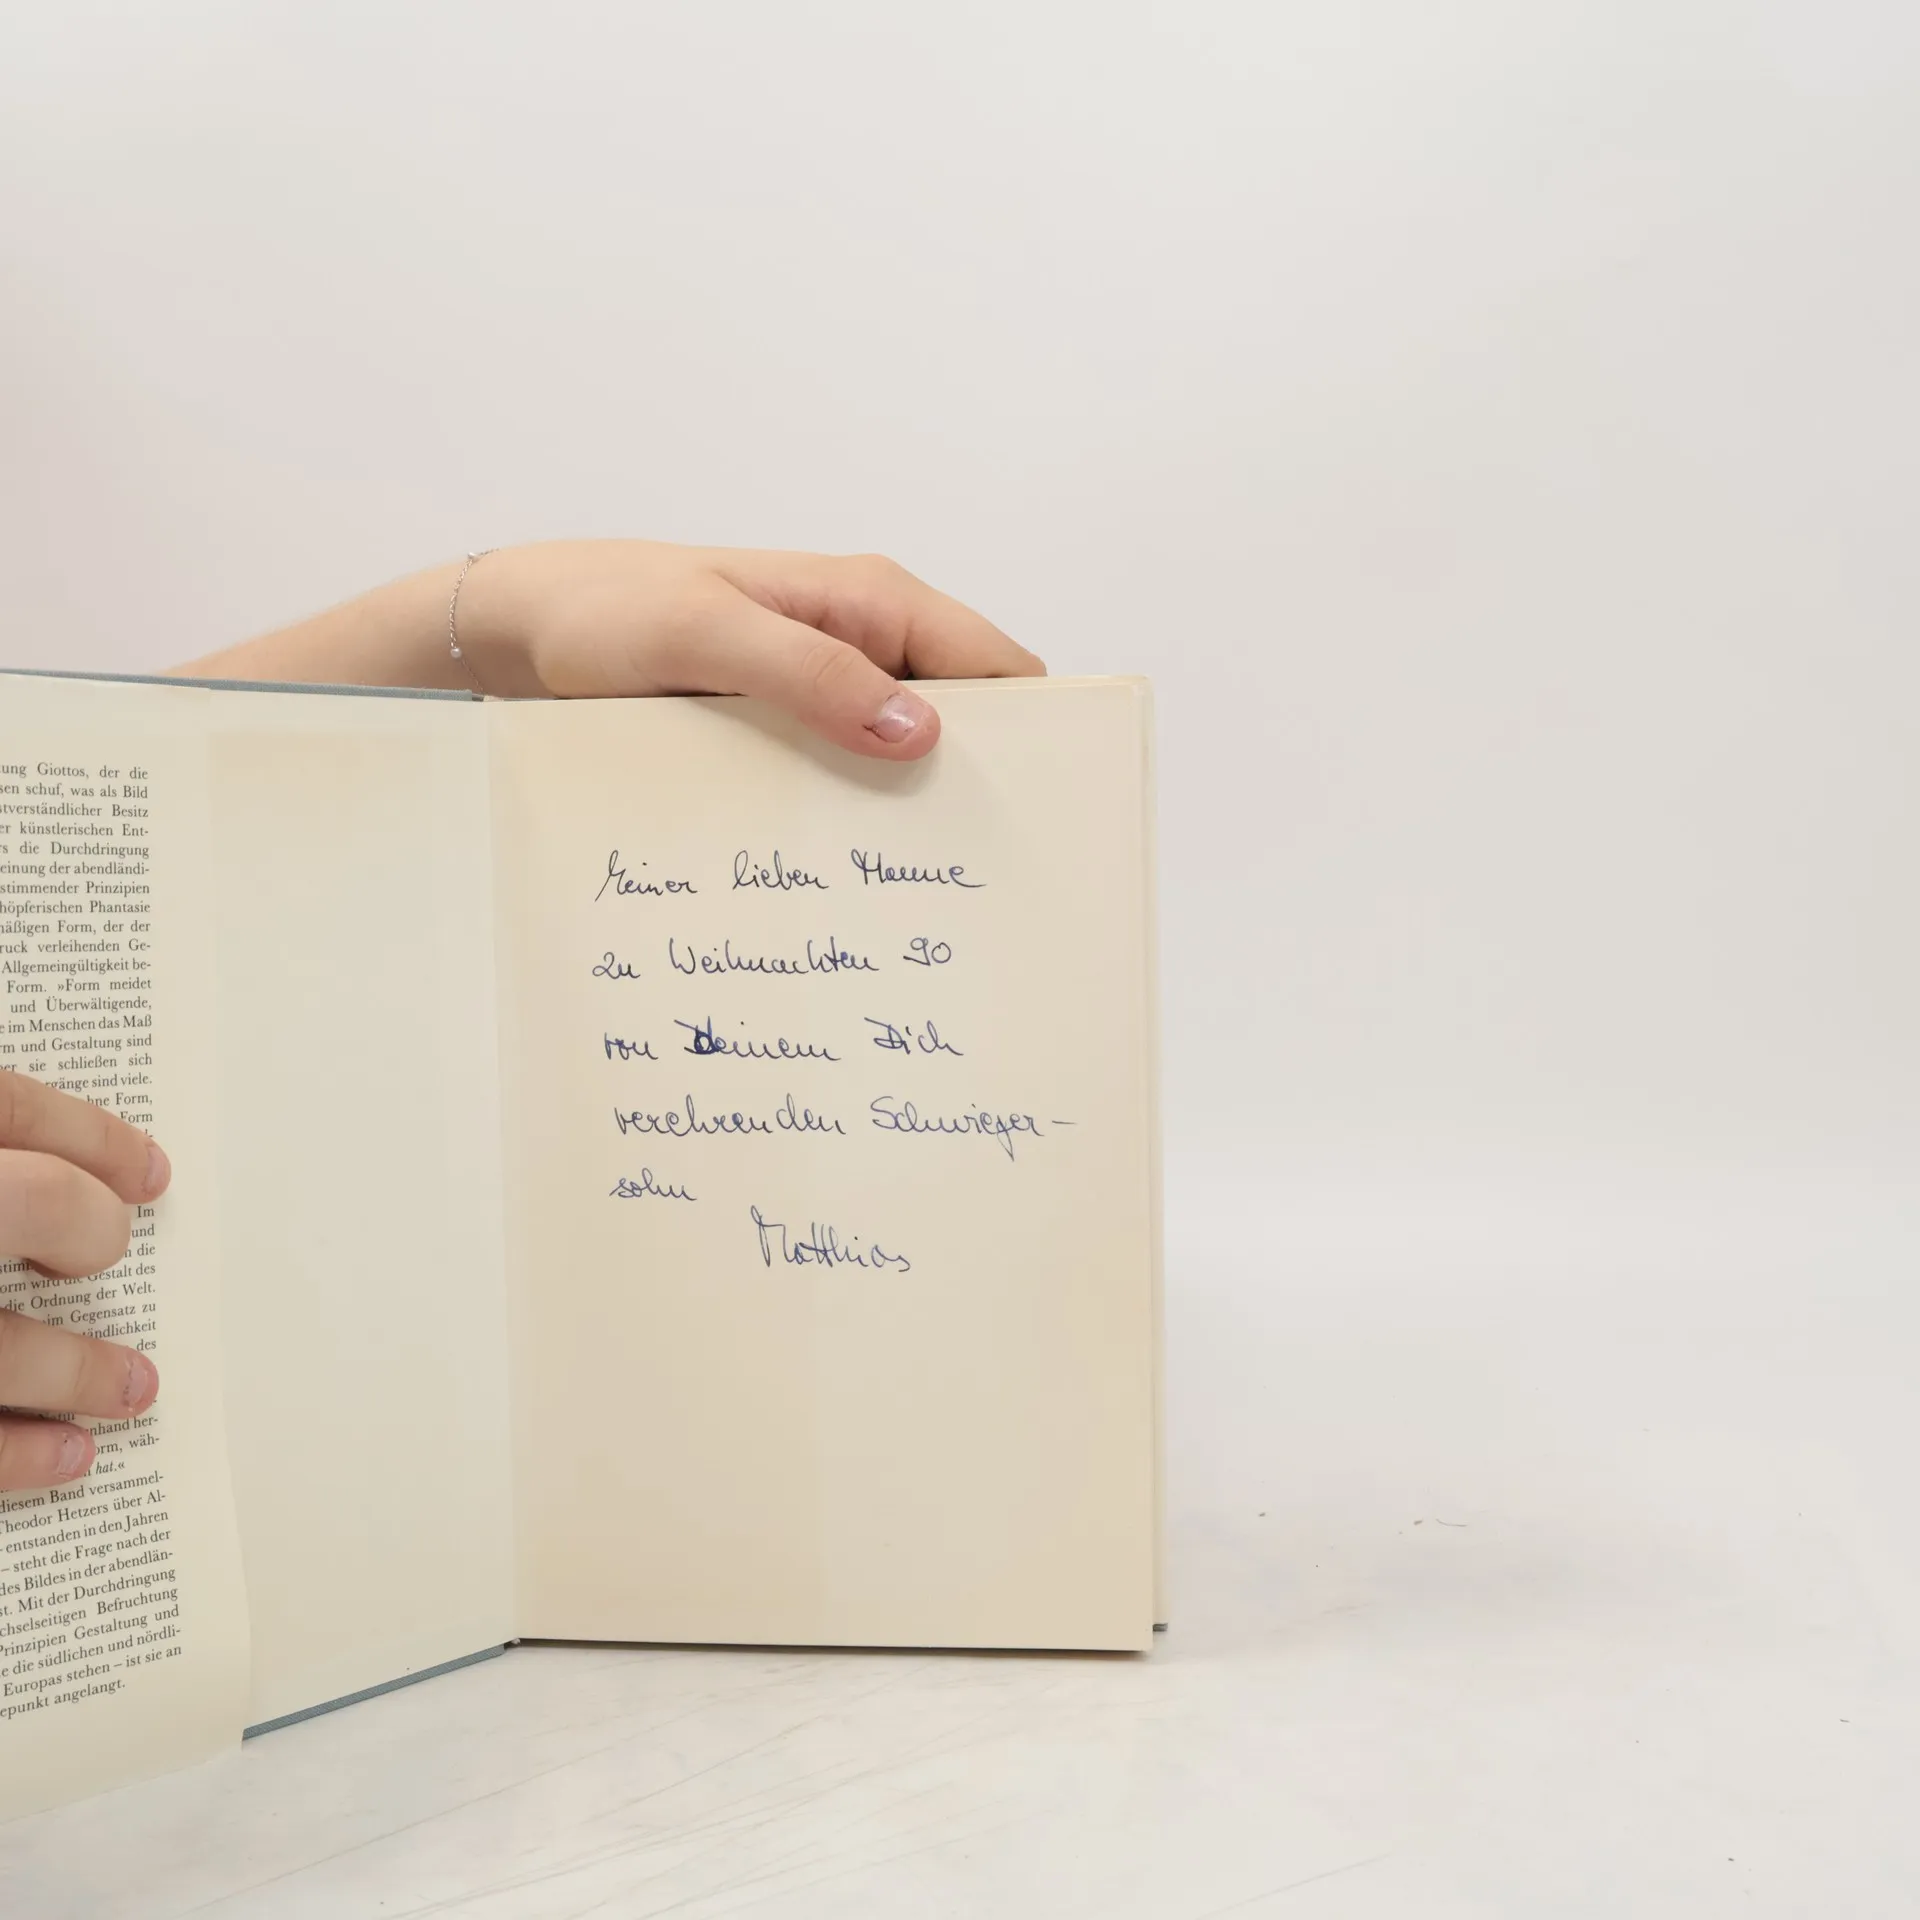 ung Giottos, der die
sen schuf, was als Bild
stverständlicher Besitz
er künstlerischen Ent-
rs die Durchdringung
einung der abendländi-
stimmender Prinzipien
höpferischen Phantasie
näßigen Form, der der
ruck verleihenden Ge-
Allgemeingültigkeit be-
Form. »Form meidet
und Überwältigende,
e im Menschen das Maß
rm und Gestaltung sind
er sie schließen sich
rgänge sind viele.
hne Form,
Form
Im
und
die
orm wird die Gestalt des
die Ordnung der Welt.
im Gegensatz zu
ständlichkeit
des
nhand her-
orm, wäh-
hat.«
diesem Band versammel-
Theodor Hetzers über Al-
– entstanden in den Jahren
– steht die Frage nach der
des Bildes in der abendlän-
st. Mit der Durchdringung
chselseitigen Befruchtung
Prinzipien Gestaltung und
e die südlichen und nördli-
Europas stehen – ist sie an
epunkt angelangt.
Meiner lieben Hanne
zu Weihnachten 90
von Deinem Dich
verehrenden Schwieger-
sohn
Matthias